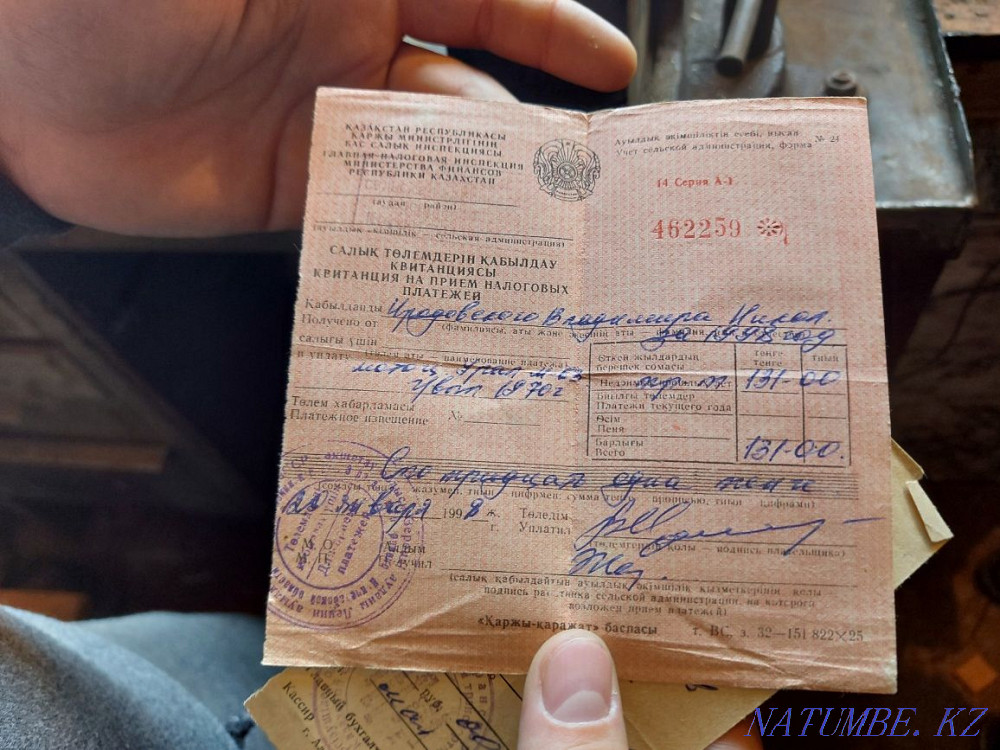 ҚАЗАҚСТАН РЕСПУБЛИКАСЫ
ҚАРЖЫ МИНИСТРЛІГІНІҢ
БАС САЛЫҚ ИНСПЕКЦИЯСЫ
ГЛАВНАЯ НАЛОГОВАЯ ИНСПЕКЦИЯ
МИНИСТЕРСТВА ФИНАНСОВ
РЕСПУБЛИКИ КАЗАХСТАН
(аудан район)
(ауылдық әкімшілік — сельская администрация)
Ауылдық әкімшіліктің есебі, нысан № 24
Учет сельской администрации, форма
14 Серия А-1
462259
САЛЫҚ ТӨЛЕМДЕРІН ҚАБЫЛДАУ
КВИТАНЦИЯСЫ
КВИТАНЦИЯ НА ПРИЕМ НАЛОГОВЫХ
ПЛАТЕЖЕЙ
Қабылданды Иродовского Владимира Никол.
Получено от
за 1998 год
салығы үшін
в уплату наименование платежа
мотоц Урал М-63
1970 г
Төлем хабарламасы
Платежное извещение №
Өткен жылдардың теңге тиын
берешек сомасы тенге
131-00
Биылғы төлемдер
Платежи текущего года
Өсім
Пеня
Барлығы
Всего 131-00.
Сто тридцать одна тенге
28 января 1998 ж.
г.
Төледім
Уплатил
(төлемгердің қолы — подпись плательщика)
Алдым
Получил
(салық қабылдайтын ауылдық әкімшілік қызметкерінің қолы
подпись работника сельской администрации, на которого
возложен прием платежей)
«Қаржы-қаражат» баспасы т. ВС, з. 32—151 822×25
Кассир
NATUMBE.KZ